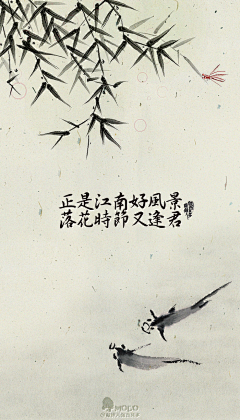 正是江南好風景
落花時節又逢君
MOKO